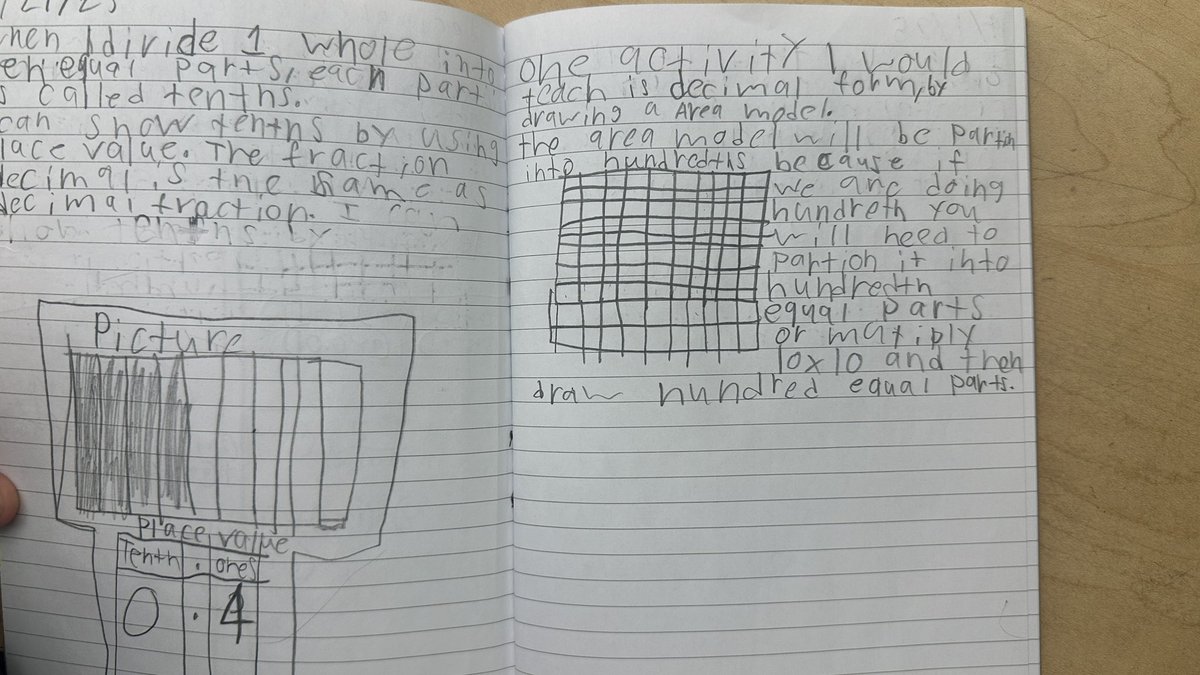 /21/25
hen I divide 1 whole into
en equal parts, each part
s called tenths.
can show tenths by using
lace value. The fraction
decimal is the same as
decimal fraction. I can
show tenths by
Picture
Place value
Tenth . ones
0 . 4
One activity I would
teach is decimal form, by
drawing a Area model.
the area model will be Partion
into hundredths because if
we are doing
hundreth you
will need to
partion it into
hundredth
equal parts
or mutiply
10x10 and then
draw hundred equal parts.